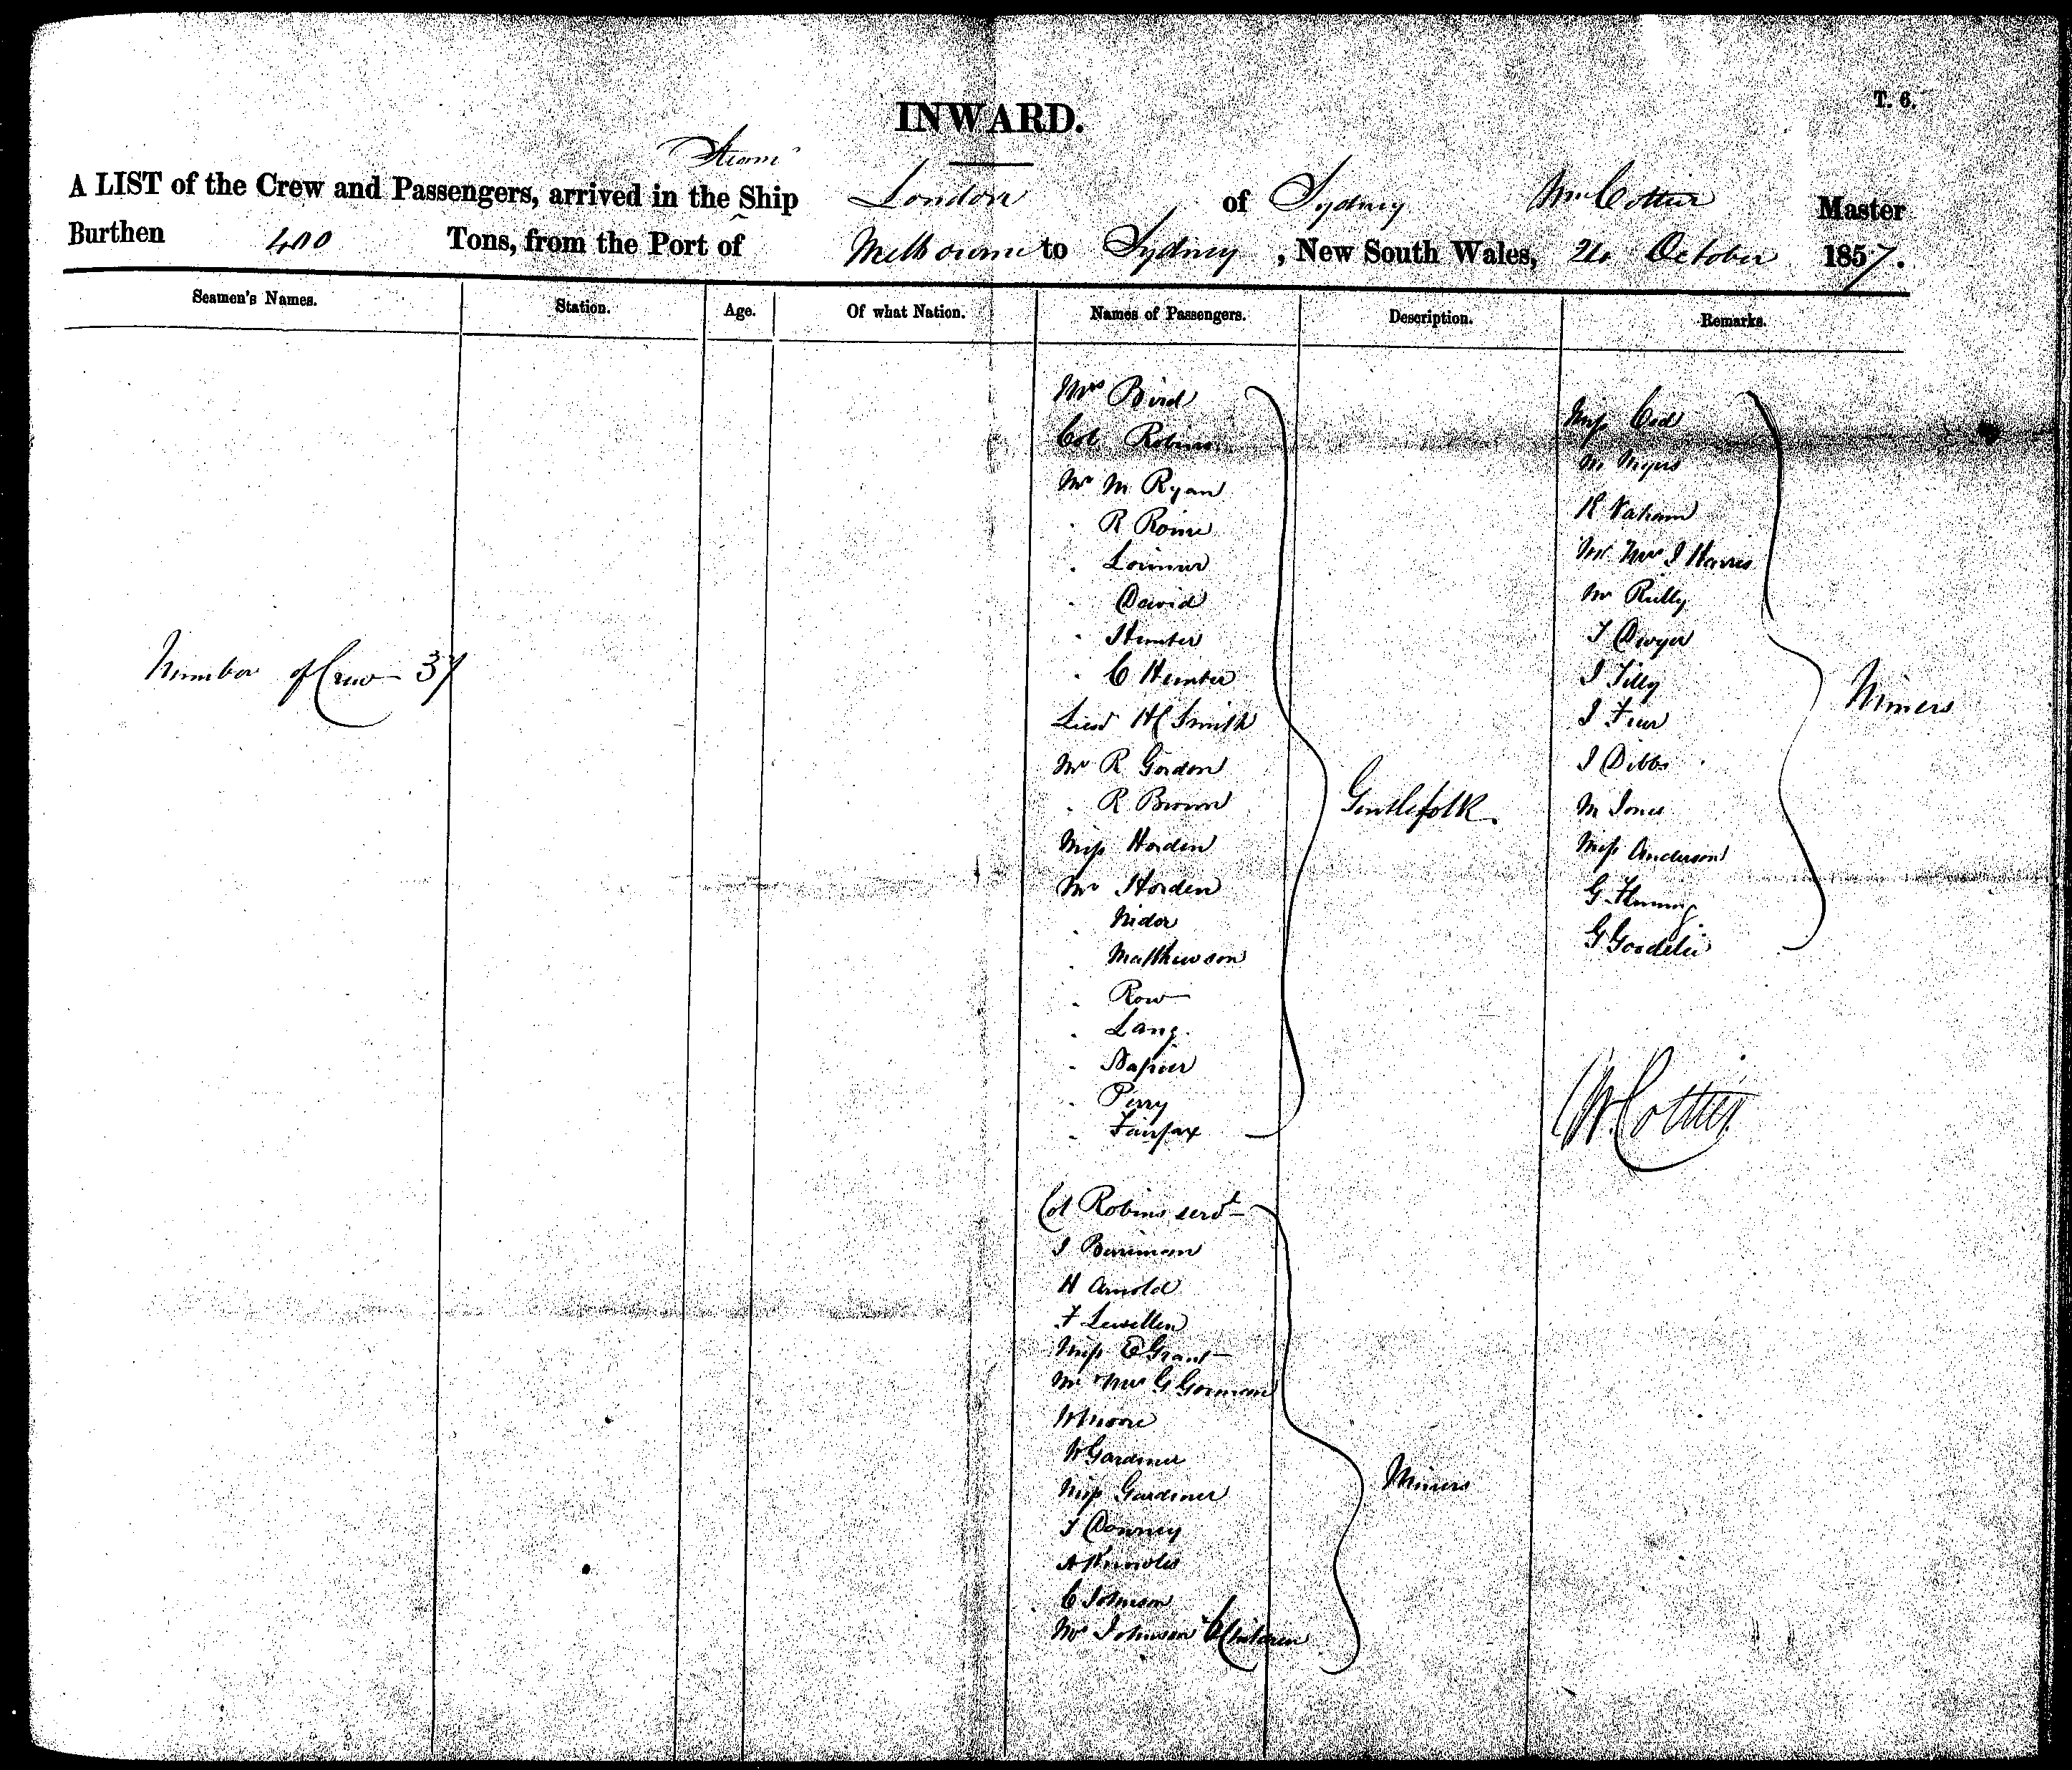 T. 6.
INWARD.
Steam
A LIST of the Crew and Passengers, arrived in the Ship London of Sydney Wm Cottier Master
Burthen 400 Tons, from the Port of Melbourne to Sydney, New South Wales, October 1857.
Seamen's Names. Station. Age. Of what Nation. Names of Passengers. Description. Remarks.
Number of Crew 37
Mrs Bird
Col Robins
Mr M Ryan
" R
" Lorimer
" David
" Hunter
" C Hunter
Lieut H C Smith
Mr R Gordon
" R Brown
Miss Horden
Mr Horden
" Nidor
" Matthewson
" Row
" Lang.
" Napier
" Perry
" Fairfax
Gentlefolk.
Col Robins servt
J Berriman
H Arnold
F Lewellen
Miss E Grant
Mr & Mrs G Gorman
W Moore
W Gardiner
Miss Gardiner
J Downey
A Knowles
C Johnson
Mrs Johnson Children
Miners
Miss
M Myers
R
Mr Mrs J Harris
Mr Reilly
T Dwyer
J Tilly
J
J Dibbs
M Jones
Miss Anderson
G Fleming
G
Miners
W. Cottier